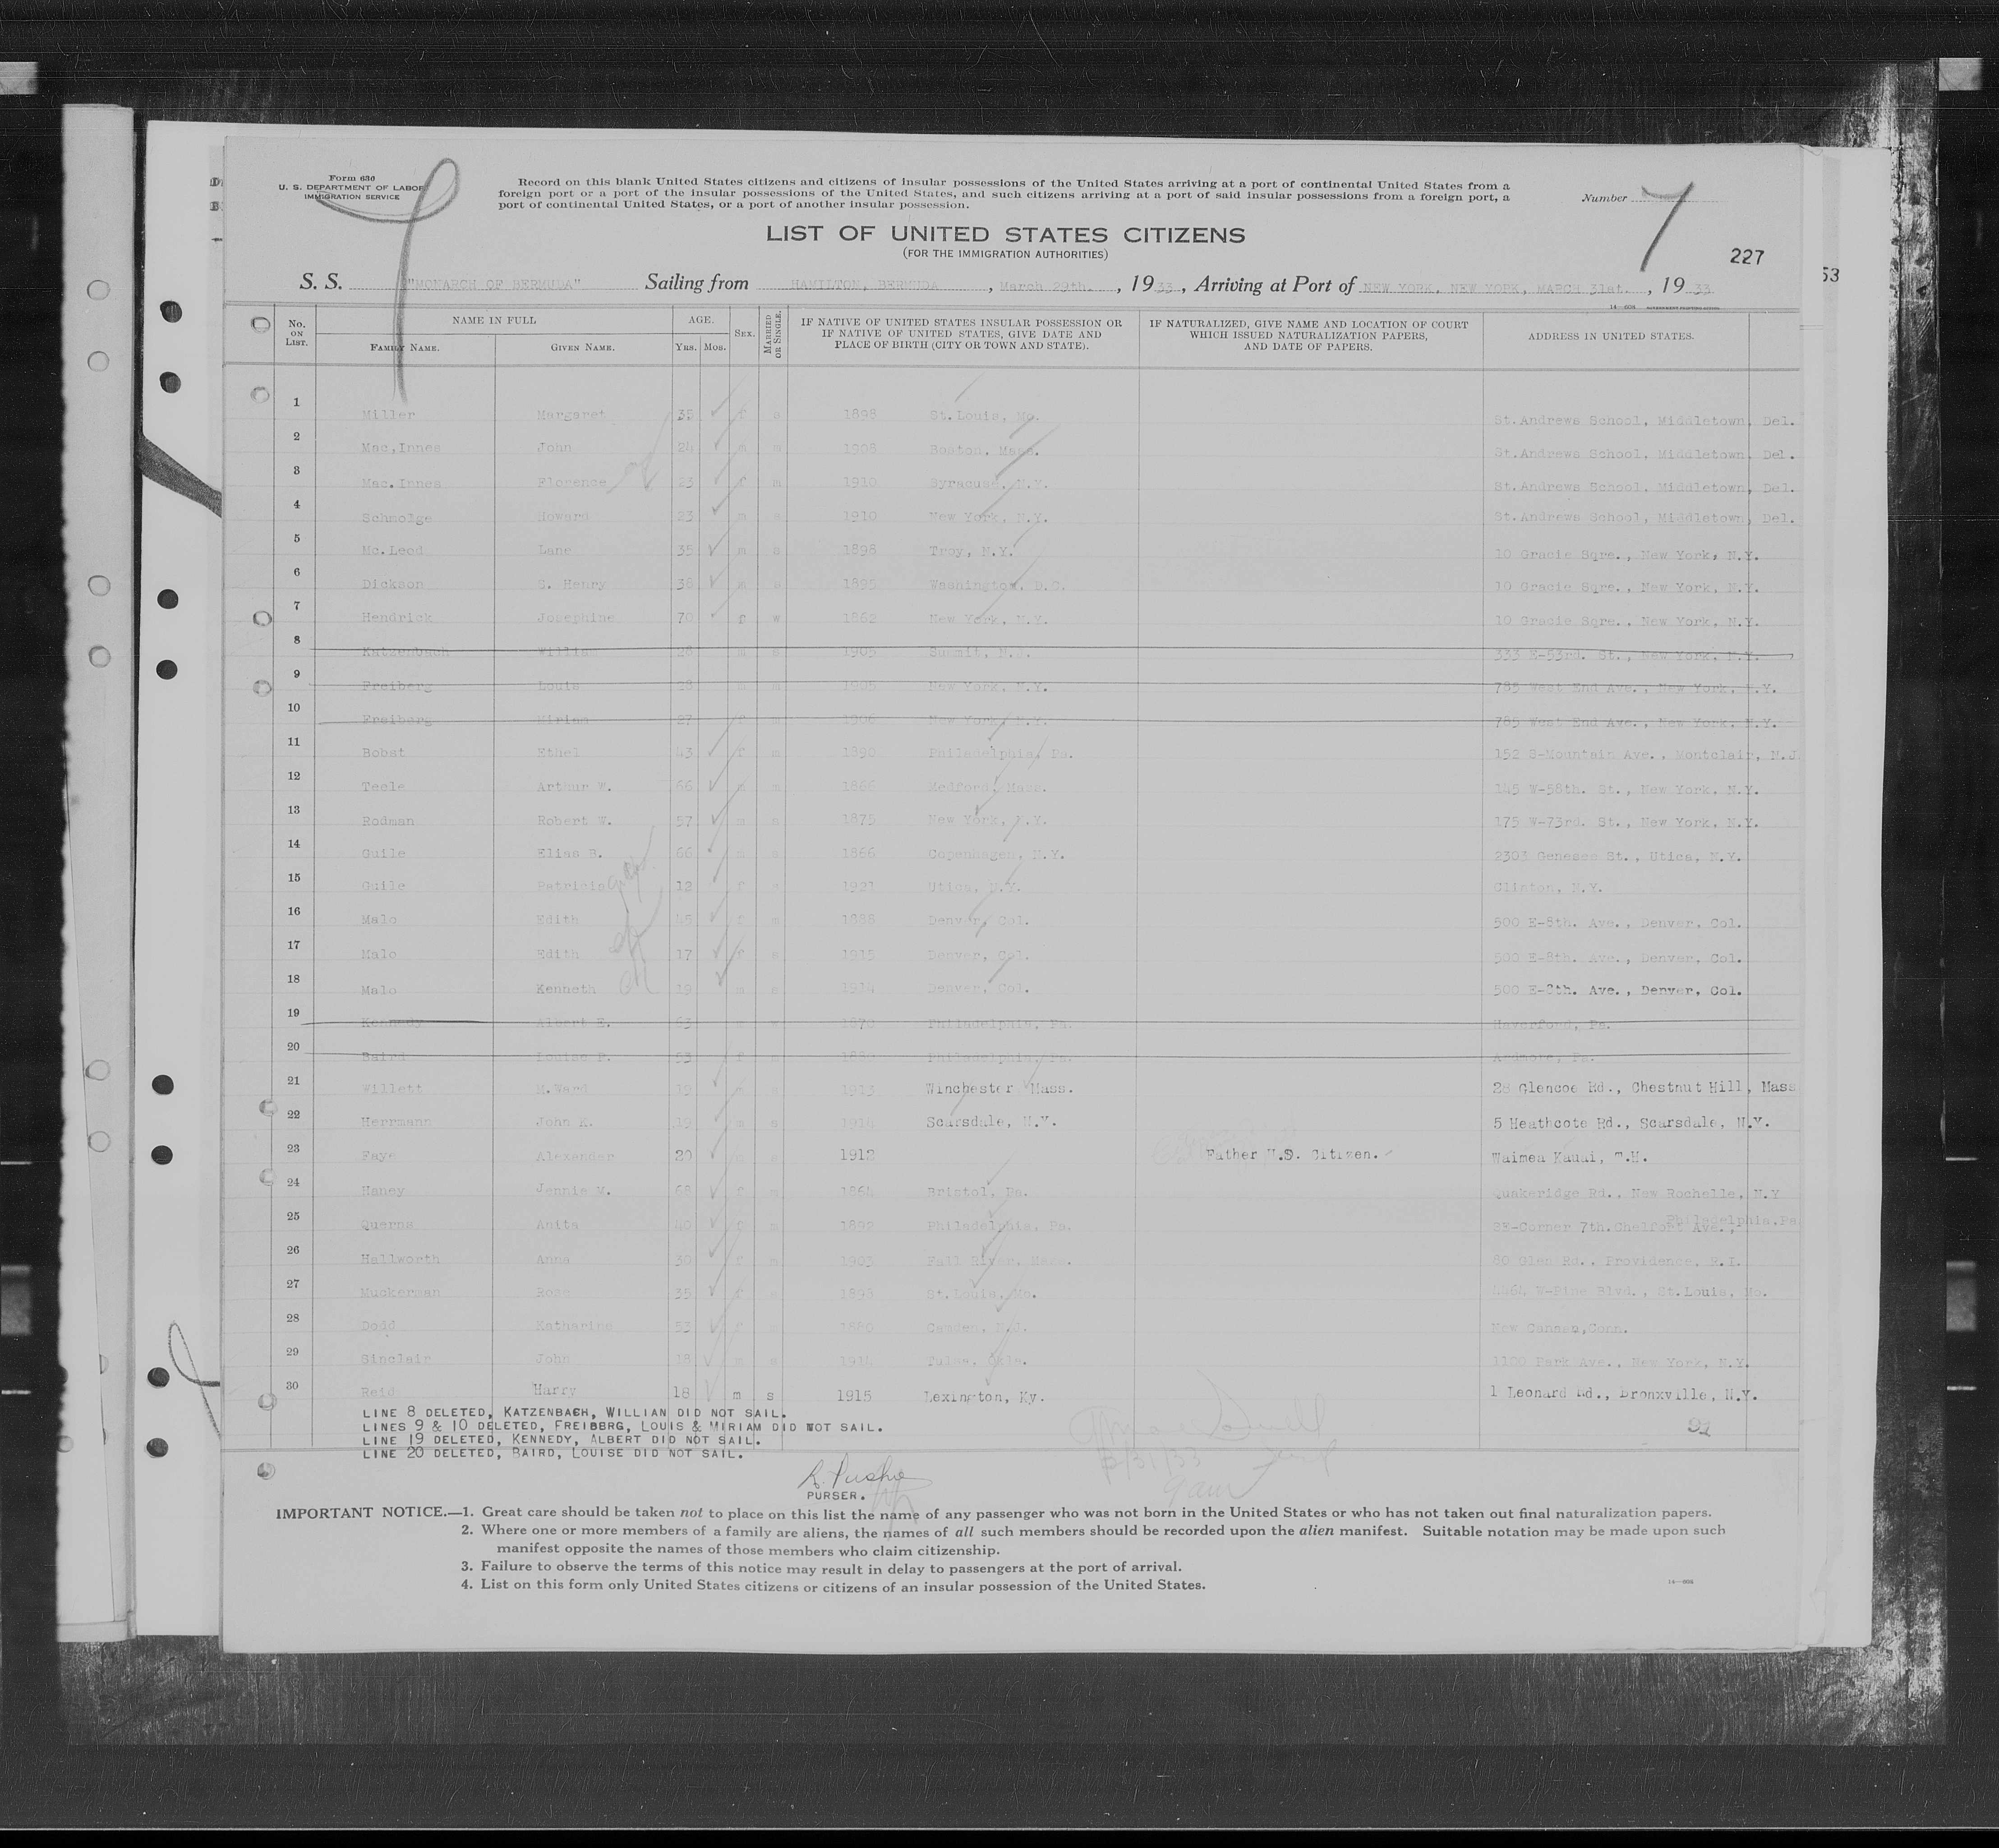 Form 630
U. S. DEPARTMENT OF LABOR
IMMIGRATION SERVICE
Record on this blank United States citizens and citizens of insular possessions of the United States arriving at a port of continental United States from a
foreign port or a port of the insular possessions of the United States, and such citizens arriving at a port of said insular possessions from a foreign port, a
port of continental United States, or a port of another insular possession.
Number 7
LIST OF UNITED STATES CITIZENS
(FOR THE IMMIGRATION AUTHORITIES)
227
53
S. S. "MONARCH OF BERMUDA" Sailing from HAMILTON, BERMUDA, March 29th., 1933, Arriving at Port of NEW YORK, NEW YORK, MARCH 31st., 1933
No. ON LIST. NAME IN FULL FAMILY NAME. GIVEN NAME. AGE. YRS. MOS. SEX. MARRIED OR SINGLE. IF NATIVE OF UNITED STATES INSULAR POSSESSION OR IF NATIVE OF UNITED STATES, GIVE DATE AND PLACE OF BIRTH (CITY OR TOWN AND STATE). IF NATURALIZED, GIVE NAME AND LOCATION OF COURT WHICH ISSUED NATURALIZATION PAPERS, AND DATE OF PAPERS. ADDRESS IN UNITED STATES.
1 Miller Margaret 35 f s 1898 St.Louis, Mo. St.Andrews School, Middletown, Del.
2 Mac.Innes John 24 m m 1908 Boston, Mass. St.Andrews School, Middletown, Del.
3 Mac.Innes Florence 23 f m 1910 Syracuse, N.Y. St.Andrews School, Middletown, Del.
4 Schmolge Howard 23 m s 1910 New York, N.Y. St.Andrews School, Middletown, Del.
5 Mc.Leod Lane 35 m s 1898 Troy, N.Y. 10 Gracie Sqre., New York, N.Y.
6 Dickson S. Henry 38 m s 1895 Washington, D.C. 10 Gracie Sqre., New York, N.Y.
7 Hendrick Josephine 70 f w 1862 New York, N.Y. 10 Gracie Sqre., New York, N.Y.
8 Katzenbach William 28 m s 1905 Summit, N.J. 333 E-53rd. St., New York, N.Y.
9 Freiberg Louis 28 m m 1905 New York, N.Y. 785 West End Ave., New York, N.Y.
10 Freiberg Miriam 27 f m 1906 New York, N.Y. 785 West End Ave., New York, N.Y.
11 Bobst Ethel 43 f m 1890 Philadelphia, Pa. 152 S-Mountain Ave., Montclair, N.J.
12 Teele Arthur W. 66 m m 1866 Medford, Mass. 145 W-58th. St., New York, N.Y.
13 Rodman Robert W. 57 m s 1875 New York, N.Y. 175 W-73rd. St., New York, N.Y.
14 Guile Elias B. 66 m s 1866 Copenhagen, N.Y. 2303 Genesee St., Utica, N.Y.
15 Guile Patricia 12 f s 1921 Utica, N.Y. Clinton, N.Y.
16 Malo Edith 45 f m 1888 Denver, Col. 500 E-8th. Ave., Denver, Col.
17 Malo Edith 17 f s 1915 Denver, Col. 500 E-8th. Ave., Denver, Col.
18 Malo Kenneth 19 m s 1914 Denver, Col. 500 E-8th. Ave., Denver, Col.
19 Kennedy Albert E. 63 1870 Philadelphia, Pa. Haverford, Pa.
20 Baird Louise P. 53 f 1880 Philadelphia, Pa. Ardmore, Pa.
21 Willett M.Ward 19 m s 1913 Winchester Mass. 28 Glencoe Rd., Chestnut Hill, Mass
22 Herrmann John K. 19 m s 1914 Scarsdale, N.Y. 5 Heathcote Rd., Scarsdale, N.Y.
23 Faye Alexander 20 m s 1912 Father U.S. Citizen. Waimea Kauai, T.H.
24 Haney Jennie M. 68 f 1864 Bristol, Pa. Quakeridge Rd., New Rochelle, N.Y
25 Querns Anita 40 f m 1892 Philadelphia, Pa. SE-Corner 7th. Chelford Ave., Philadelphia,Pa
26 Hallworth Anna 30 f m 1903 Fall River, Mass. 80 Glen Rd., Providence, R.I.
27 Muckerman Rose 35 f s 1898 St.Louis, Mo. 4464 W-Pine Blvd., St.Louis, Mo.
28 Dodd Katharine 53 f 1880 Camden, N.J. New Canaan,Conn.
29 Sinclair John 18 m s 1914 Tulsa, Okla. 1100 Park Ave., New York, N.Y.
30 Reid Harry 18 m s 1915 Lexington, Ky. 1 Leonard Rd., Bronxville, N.Y.
LINE 8 DELETED, KATZENBACH, WILLIAN DID NOT SAIL.
LINES 9 & 10 DELETED, FREIBBRG, LOUIS & MIRIAM DID NOT SAIL.
LINE 19 DELETED, KENNEDY, ALBERT DID NOT SAIL.
LINE 20 DELETED, BAIRD, LOUISE DID NOT SAIL.
3/31/33
PURSER.
IMPORTANT NOTICE.—1. Great care should be taken not to place on this list the name of any passenger who was not born in the United States or who has not taken out final naturalization papers.
2. Where one or more members of a family are aliens, the names of all such members should be recorded upon the alien manifest. Suitable notation may be made upon such
manifest opposite the names of those members who claim citizenship.
3. Failure to observe the terms of this notice may result in delay to passengers at the port of arrival.
4. List on this form only United States citizens or citizens of an insular possession of the United States.